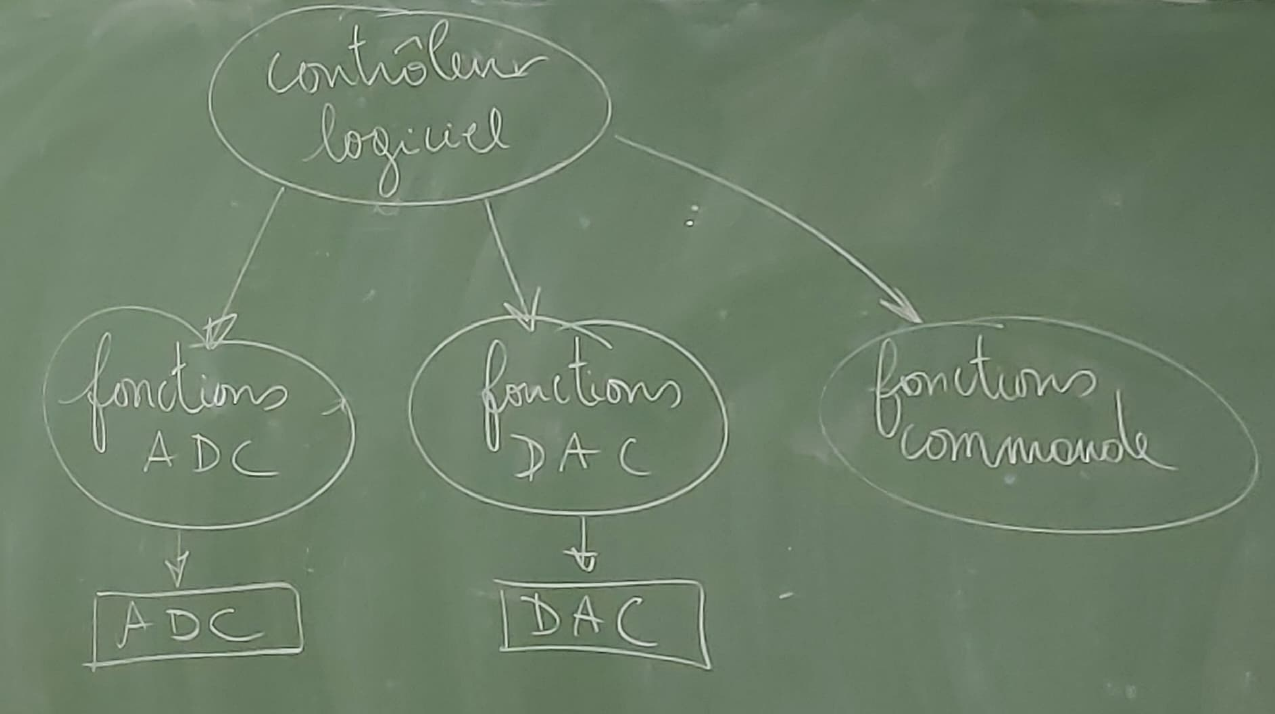 contrôleur
logiciel
fonctions
ADC
fonctions
DAC
fonctions
commande
ADC
DAC